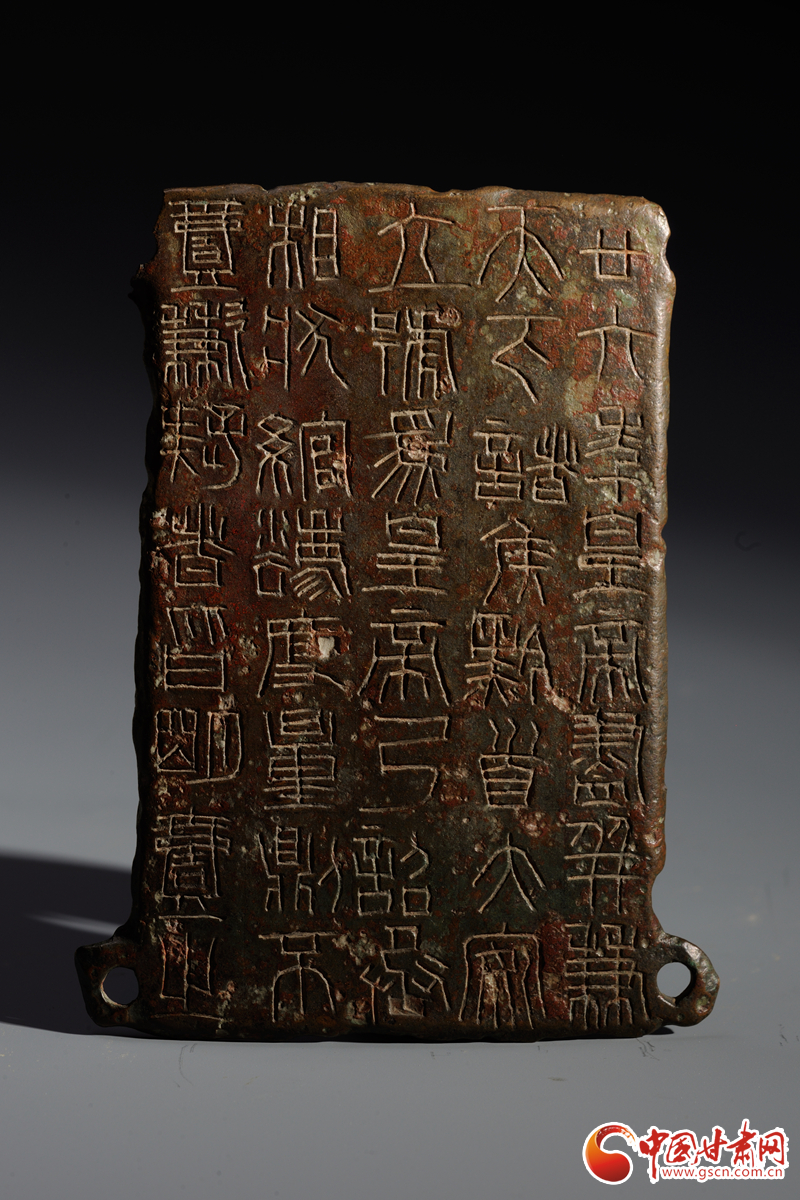 廿六年皇帝盡并兼
天下諸侯黔首大安
立號為皇帝乃詔丞
相狀綰灋度量則不
壹歉疑者皆明壹之
中国甘肃网
www.gscn.com.cn